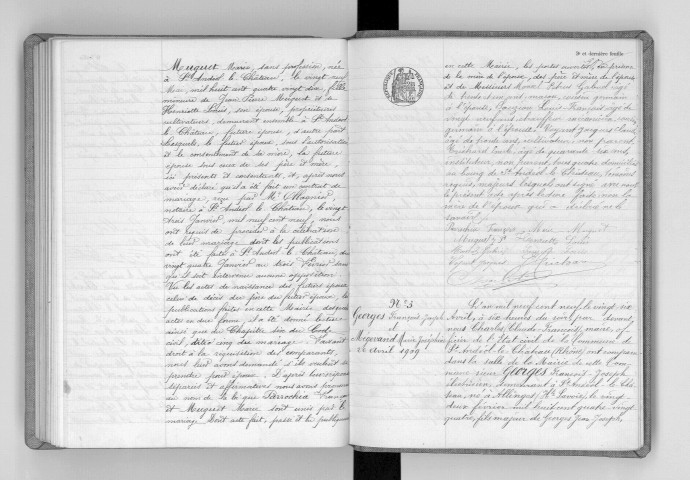 Muguet Marie, sans profession, née
à St Andéol le Château, le vingt neuf
Mai, mil huit cent quatre vingt dix, fille
mineure de Jean Pierre Muguet et de
Henriette Louis, son épouse, propriétaires
cultivateurs, demeurant ensemble à St Andéol
le Château, future épouse, d'autre part
Lesquels, le futur époux, sous l'autorisation
et le consentement de sa mère, la future
épouse sous ceux de ses père et mère,
ici présents et consentants, et, après nous
avoir déclaré qu'il a été fait un contrat de
mariage, reçu par Me Magnien,
notaire à St Andéol le Château, le vingt
trois Janvier, mil neuf cent neuf, nous
ont requis de procéder à la célébration
de leur mariage dont les publications
ont été faites à St Andéol le Château, du
vingt quatre Janvier au trois Février sans
qu'il soit intervenu aucune opposition.
Vu les actes de naissance des futurs époux
celui de décès du père du futur époux, les
publications faites en cette Mairie, desquels
actes en due forme, il a été donné lecture
ainsi que du Chapitre six du Code
civil, titre cinq du mariage. Faisant
droit à la réquisition des comparants,
nous leur avons demandé s'ils voulaient se
prendre pour époux. D'après leurs réponses
séparées et affirmatives nous avons prononcé
au nom de la loi que Parrochia François
et Muguet Marie sont unis par le
mariage. Dont acte fait, passé et lu publiquement
2e et dernière feuille
en cette Mairie, les portes ouvertes, en présence
de la mère de l'époux, des père et mère de l'épouse
et de Messieurs
de trente ans, maçon, cousin germain
de l'époux,
vingt neuf ans, chauffeur
germain à l'épouse,
de trente ans, cultivateur, non parent,
âgé de quarante six ans,
instituteur, non parent, tous quatre domiciliés
au bourg de St Andéol le Château, témoins
requis, majeurs. Lesquels ont signé avec nous
le présent acte après lecture faite, non la
mère de l'époux qui a déclaré ne le
savoir.
Parrochia François Marie Muguet
Muguet J P Henriette Louis
No 5
Georges François Joseph
et
Marie Joséphine
Avril 1909
L'an mil neuf cent neuf, le vingt six
Avril, à six heures du soir, par devant
nous Charles Claude François, maire, officier
de l'Etat civil de la Commune de
St Andéol le Château (Rhône) ont comparu
dans la salle de la Mairie de cette Commune
sieur Georges François Joseph
demeurant à St Andéol le Château,
né à Allinges (Hte Savoie) le vingt
deux février mil huit cent quatre vingt
quatre, fils majeur de Georges Jean Joseph,